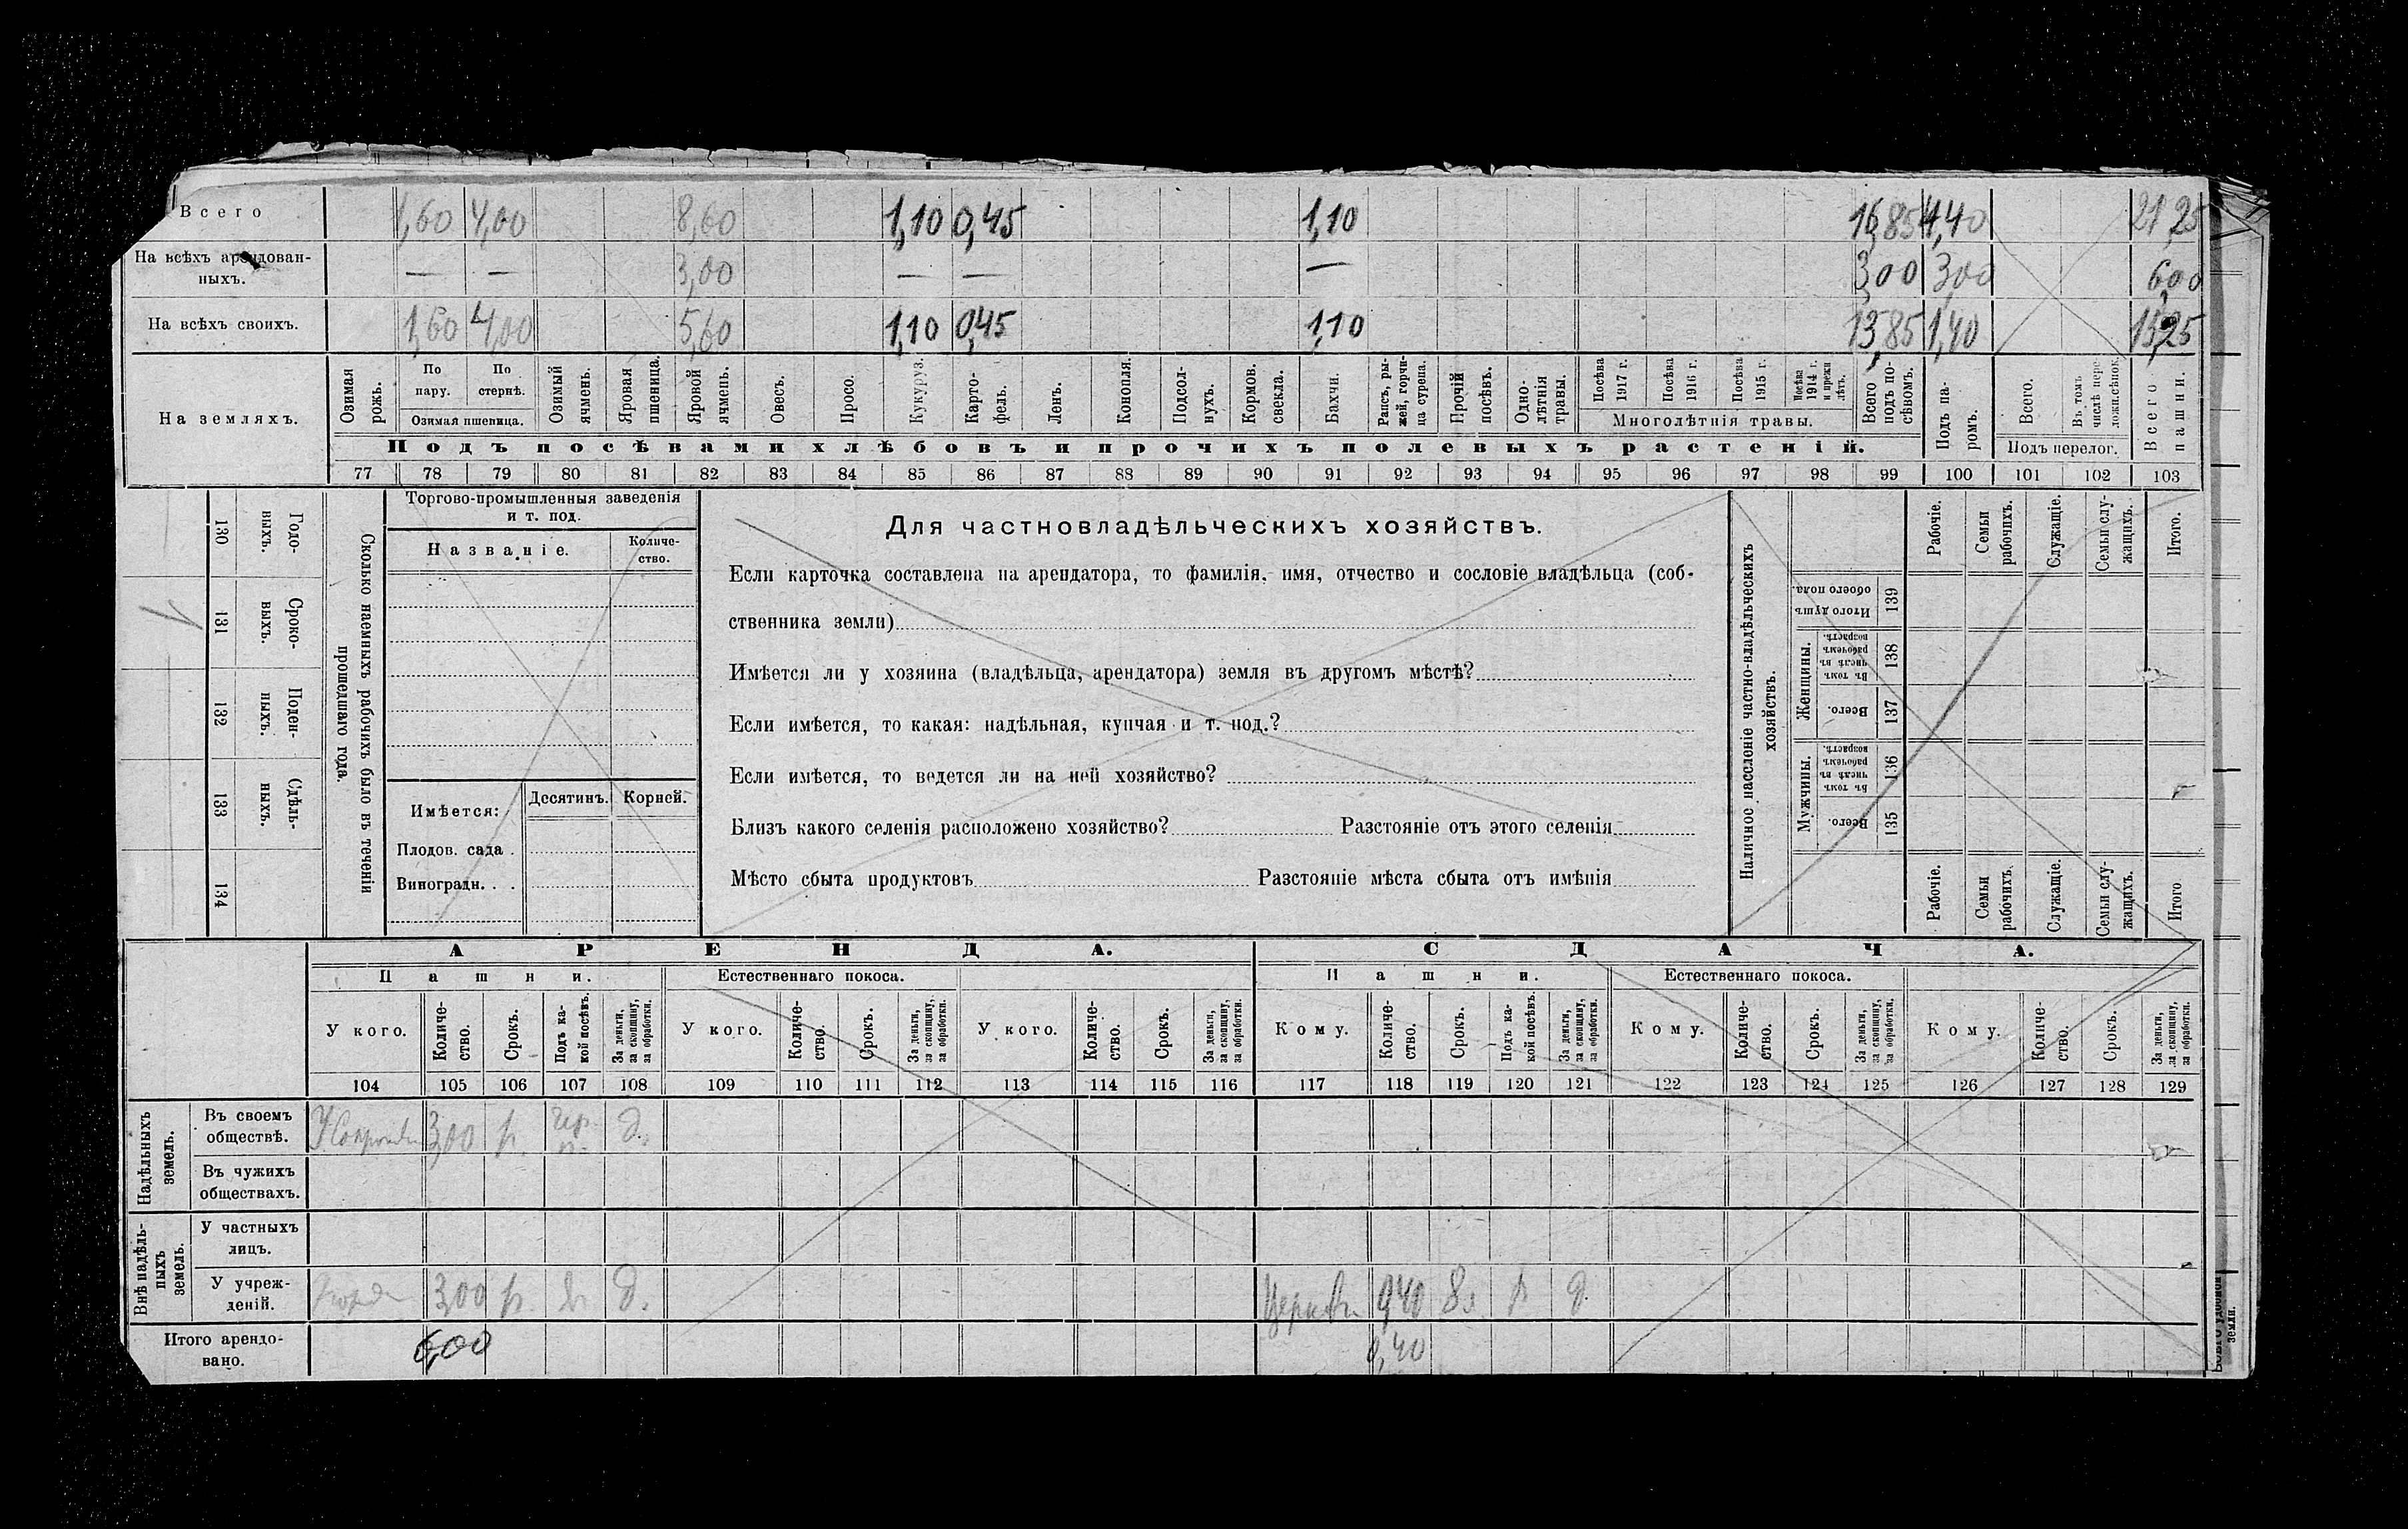 Всего 1,60 4,00 8,60 1,10 0,45 1,10 16,85 4,40 21,25
На всѣхъ арендован-
ныхъ. — — 3,00 — — — 3,00 3,00 6,00
На всѣхъ своихъ. 1,60 4,00 5,60 1,10 0,45 1,10 13,85 1,40 15,25
На земляхъ.
Озимая рожь.
По пару.
По стернѣ.
Озимая пшеница.
Озимый ячмень.
Яровая пшеница.
Яровой ячмень.
Овесъ.
Просо.
Кукуруз.
Карто-
фель.
Ленъ.
Конопля.
Подсол-
нухъ.
Кормов. свекла.
Бахчи.
Рапсъ, ры-
жей, горчи-
ца сурепа.
Прочій посѣвъ.
Одно-
лѣтнія травы.
Посѣва 1917 г.
Посѣва 1916 г.
Посѣва 1915 г.
Посѣва 1914 г. и прежн лѣтъ.
Многолѣтнія травы.
Всего подъ по-
сѣвомъ.
Подъ па-
ромъ.
Всего.
Въ томъ числѣ пере-
ложн.сѣнок.
Подъ перелог.
Всего пашни.
Подъ посѣвами хлѣбовъ и прочихъ полевыхъ растеній.
77 78 79 80 81 82 83 84 85 86 87 88 89 90 91 92 93 94 95 96 97 98 99 100 101 102 103
130 Годо-
выхъ.
131 Сроко-
выхъ.
132 Поден-
ныхъ.
133 Сдѣль-
ныхъ.
134
Сколько наемныхъ рабочихъ было въ теченіи
прошедшаго года.
Торгово-промышленныя заведенія
и т. под.
Названіе.
Количе-
ство.
Имѣется:
Десятинъ. Корней.
Плодов. сада .
Виноградн. . .
Для частновладѣльческихъ хозяйствъ.
Если карточка составлена на арендатора, то фамилія, имя, отчество и сословіе владѣльца (соб-
ственника земли)
Имѣется ли у хозяина (владѣльца, арендатора) земля въ другомъ мѣстѣ?
Если имѣется, то какая: надѣльная, купчая и т. под.?
Если имѣется, то ведется ли на ней хозяйство?
Близъ какого селенія расположено хозяйство? Разстояніе отъ этого селенія
Мѣсто сбыта продуктовъ Разстояніе мѣста сбыта отъ имѣнія
Наличное населеніе частно-владѣльческихъ
хозяйствъ.
Рабочіе.
Семьи рабочихъ.
Служащіе.
Семьи слу-
жащихъ.
Итого.
Итого душъ обоего пола. 139
Женщины.
Въ томъ числѣ въ рабочемъ возрастѣ. 138
Всего. 137
Мужчины.
Въ томъ числѣ въ рабочемъ возрастѣ. 136
Всего. 135
Рабочіе.
Семьи рабочихъ.
Служащіе.
Семьи слу-
жащихъ.
Итого
АРЕНДА. СДАЧА.
Пашни. Естественнаго покоса. Пашни. Естественнаго покоса.
У кого. Количе-
ство. Срокъ. Подъ ка-
кой посѣвъ. За деньги, за скопщину, за обработки.
У кого. Количе-
ство. Срокъ. За деньги, за скопщину, за обработки.
У кого. Количе-
ство. Срокъ. За деньги, за скопщину, за обработки.
Кому. Количе-
ство. Срокъ. Подъ ка-
кой посѣвъ. За деньги, за скопщину, за обработки.
Кому. Количе-
ство. Срокъ. За деньги, за скопщину, за обработки.
Кому. Количе-
ство. Срокъ. За деньги, за скопщину, за обработки.
104 105 106 107 108 109 110 111 112 113 114 115 116 117 118 119 120 121 122 123 124 125 126 127 128 129
Надѣльныхъ земель.
Въ своемъ
обществѣ. 3,00 д.
Въ чужихъ
обществахъ.
Внѣ надѣль-
ныхъ земель.
У частныхъ
лицъ.
У учреж-
деній. 3,00 д. Церкви 0,40 д
Итого арендо-
вано. 6,00 0,40
земли.